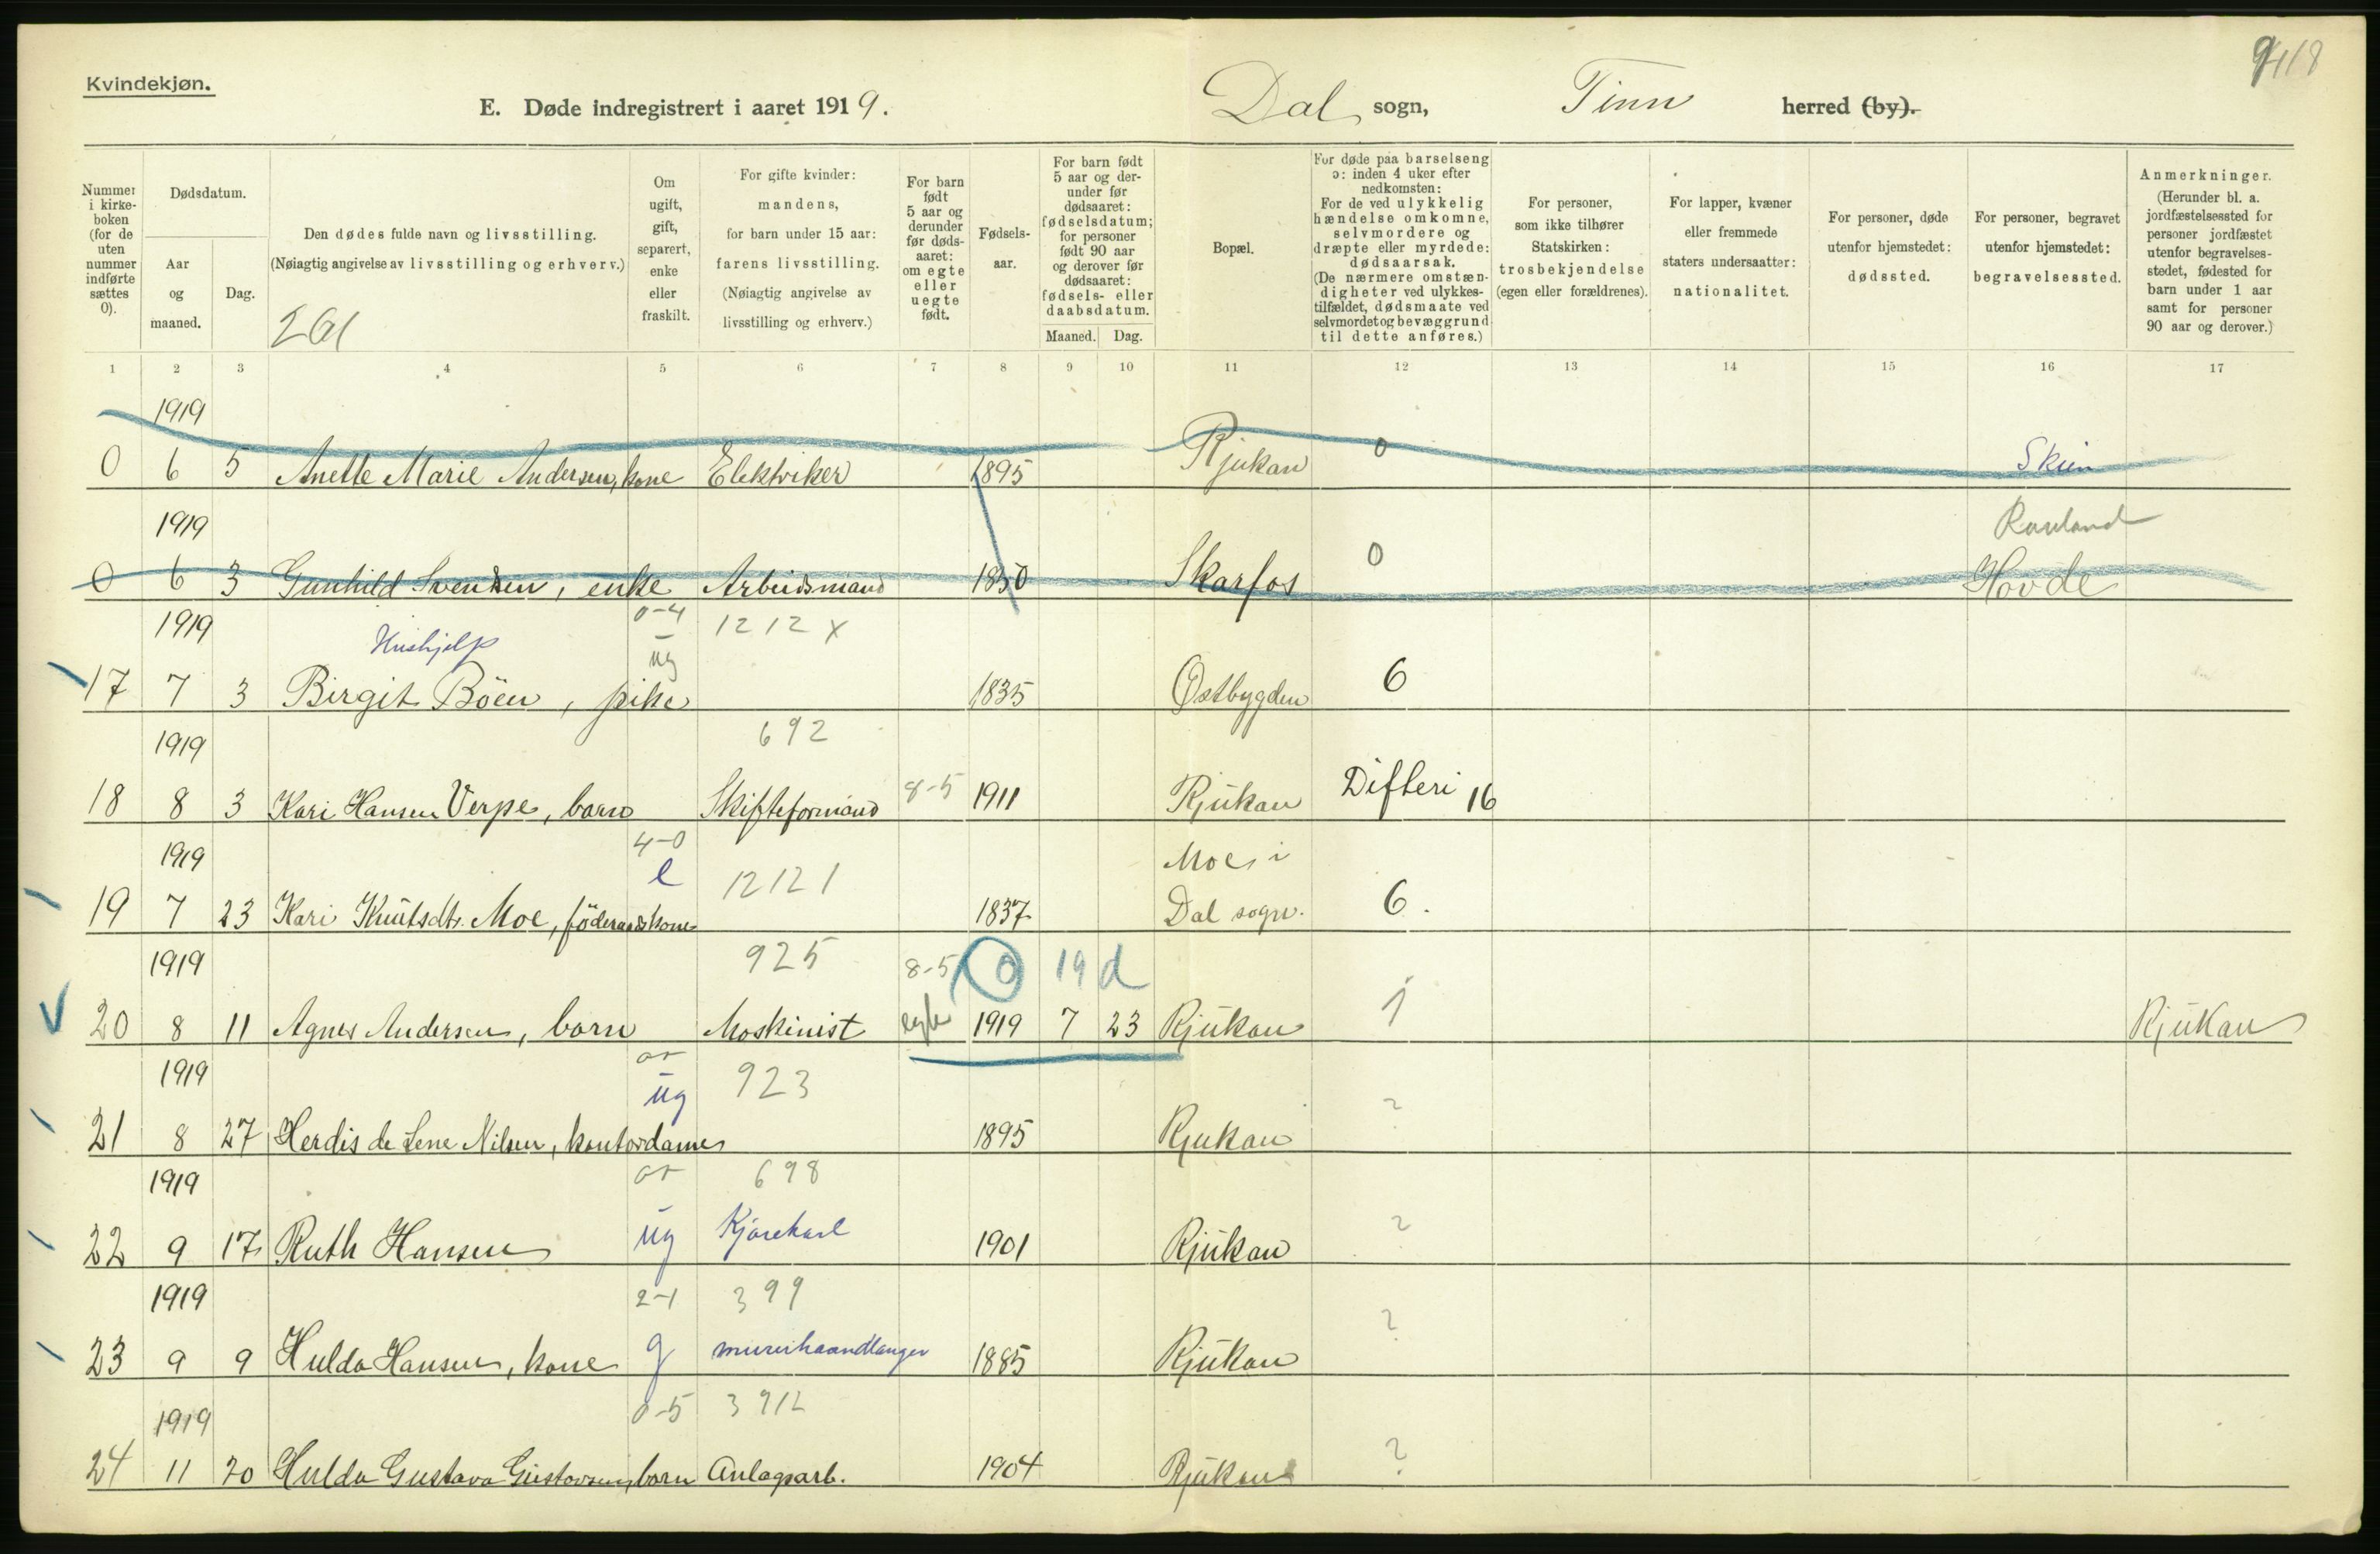 9418
Kvindekjøn.
E. Døde indregistrert i aaret 1919.
Dal sogn, Tinn herred (by).
Nummer i kirke-boken (for de uten nummer indførte sættes 0).
Dødsdatum.
Aar og maaned.
Dag.
Den dødes fulde navn og livsstilling.
(Nøiagtig angivelse av livsstilling og erhverv.)
261
Om ugift, gift, separert, enke eller fraskilt.
For gifte kvinder: mandens, for barn under 15 aar: farens livsstilling. (Nøiagtig angivelse av livsstilling og erhverv.)
For barn født 5 aar og derunder før døds-aaret: om egte eller uegte født.
Fødsels-aar.
For barn født 5 aar og der-under før dødsaaret: fødselsdatum; for personer født 90 aar og derover før dødsaaret: fødsels- eller daabsdatum.
Maaned. Dag.
Bopæl.
For døde paa barselseng ɔ: inden 4 uker efter nedkomsten: For de ved ulykkelig hændelse omkomne, selvmordere og dræpte eller myrdede: dødsaarsak. (De nærmere omstæn-digheter ved ulykkes-tilfældet, dødsmaate ved selvmordet og bevæggrund til dette anføres.)
For personer, som ikke tilhører Statskirken: trosbekjendelse (egen eller forældrenes).
For lapper, kvæner eller fremmede staters undersaatter: nationalitet.
For personer, døde utenfor hjemstedet: dødssted.
For personer, begravet utenfor hjemstedet: begravelsessted.
Anmerkninger.
(Herunder bl. a. jordfæstelsessted for personer jordfæstet utenfor begravelses-stedet, fødested for barn under 1 aar samt for personer 90 aar og derover.)
1 2 3 4 5 6 7 8 9 10 11 12 13 14 15 16 17
1919
0 6 5 Anette Marie Andersen, kone Elektriker 1895 Rjukan 0 Skien
1919 Rauland
0 6 3 Gunhild Svendsen, enke Arbeidsmand 1850 Skarfos 0 Hovde
1919 Hushjelp 0-4 ug 1212 x
17 7 3 Birgit Böen, pike 1835 Østbygden 6
1919 692
18 8 3 Kari Hansen Verpe, barn Skifteformand 8-5 1911 Rjukan Difteri 16
1919 4-0 e 1212 1 Moe i
19 7 23 Kari Knutsdtr. Moe, föderaadskone 1837 Dal sogn. 6.
1919 925 8-5 0 19 d
20 8 11 Agnes Andersen, barn Maskinist egte 1919 7 23 Rjukan 1 Rjukan
1919 ug 923
21 8 27 Herdis de Lene Nilsen, kontordame 1895 Rjukan ?
1919 698
22 9 17 Ruth Hansen ug Kjørekarl 1901 Rjukan ?
1919 2-1 399
23 9 9 Hulda Hansen, kone g murerhaandlanger 1885 Rjukan ?
1919 0-5 3912
24 11 20 Hulda Gustava Gustavsen, barn Anlagsarb. 1904 Rjukan ?